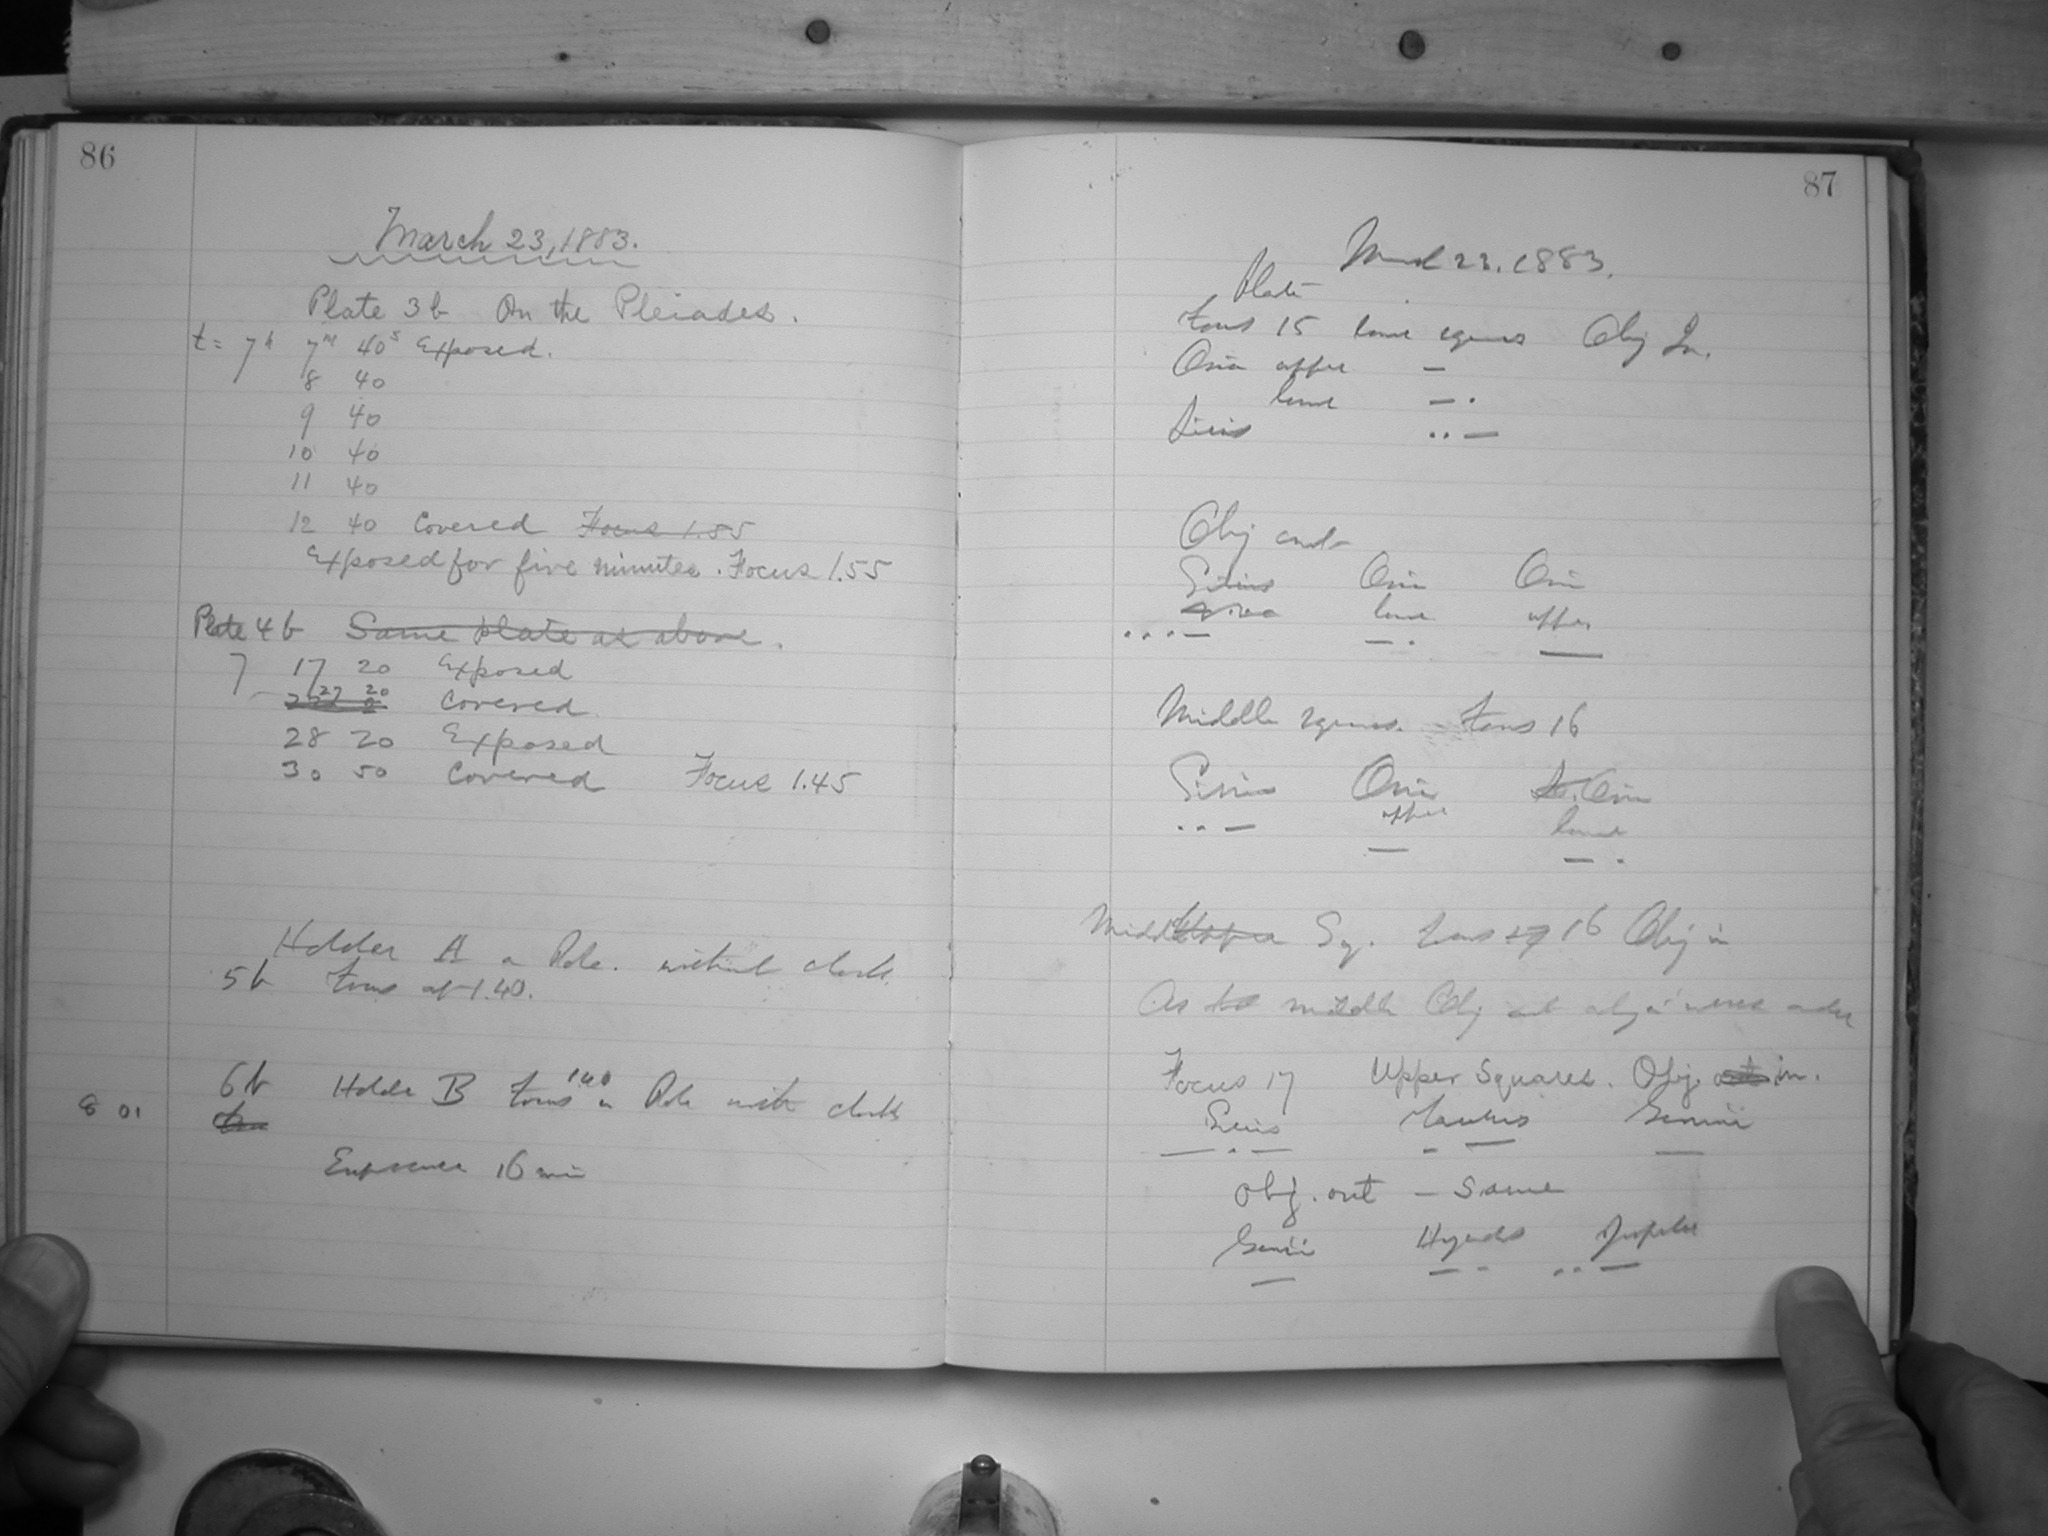 86
March 23, 1883.
Plate 3b On the Pleiades.
t = 7h 7m 40s Exposed.
8 40
9 40
10 40
11 40
12 40 Covered Focus 1.85
Exposed for five minutes. Focus 1.55
Plate 4b Same plate as above.
7 17 20 Exposed
27 20
Covered
28 20 Exposed
30 50 Covered Focus 1.45
Holder A on Pole. without clock
5b Focus at 1.40.
6b Holder B Focus 1.40 on Pole with clock
8 01
Exposure 16 min
87
March 23. 1883.
Plate
Focus 15 lower squares Obj In.
Orion upper —
lower — .
Sirius .. —
Obj out
Sirius Orion Orion
lower upper
.... — — . —
Middle squares. Focus 16
Sirius Orion Orion
upper lower
.. — — — .
Middle Upper Sq. Focus 17 16 Obj in
As middle Obj out obj in order
Focus 17 Upper Squares. Obj. out in.
Sirius Taurus Gemini
— . — - — —
Obj. out — Same
Gemini Hyades Jupiter
— — - .. —